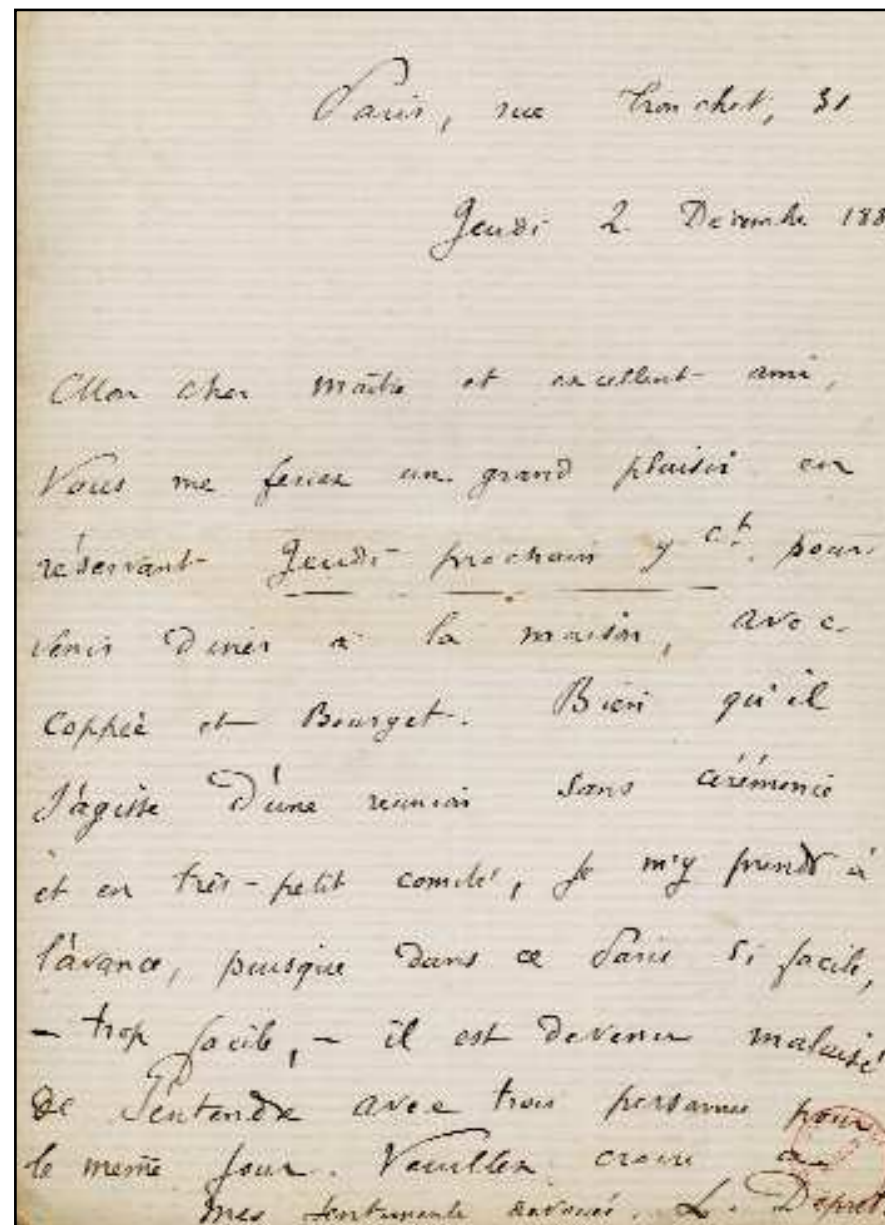 Paris, rue Tronchet, 31
Jeudi 2 Décembre 188
Mon cher maître et excellent ami,
Vous me feriez un grand plaisir en
réservant Jeudi prochain 9 ct. pour
venir diner à la maison, avec
Coppée et Bourget. Bien qu'il
s'agisse d'une réunion sans cérémonie
et en très-petit comité, je m'y prends à
l'avance, puisque dans ce Paris si facile,
- trop facile, - il est devenu malaisé
de s'entendre avec trois personnes pour
le même jour. Veuillez croire à
mes sentiments dévoués. L. Depret